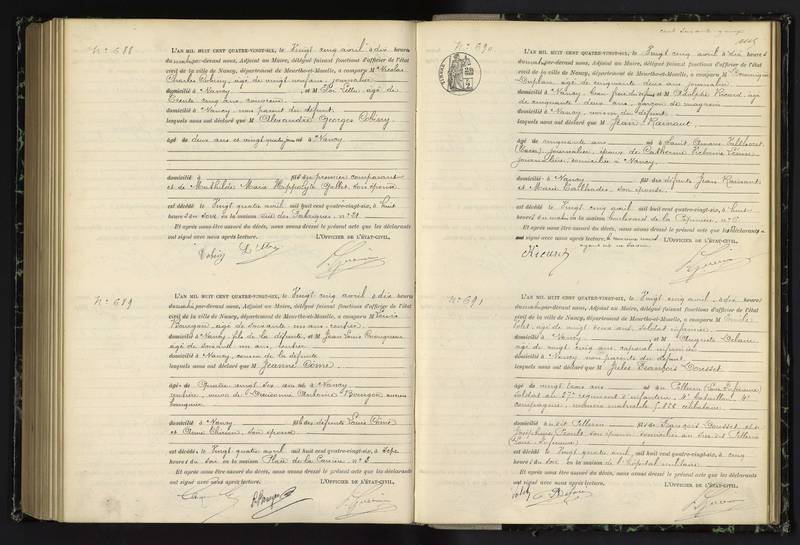 N° 688
L'AN MIL HUIT CENT QUATRE-VINGT-SIX, le Vingt cinq avril à dix heures
du matin par-devant nous, Adjoint au Maire, délégué faisant fonctions d'officier de l'état
civil de la ville de Nancy, département de Meurthe-et-Moselle, a comparu M Nicolas
Charles âgé de vingt neuf ans, journalier
domicilié à Nancy et M âgé de
trente cinq ans,
domicilié à Nancy, non parent du défunt
lesquels nous ont déclaré que M Alexandre Georges
âgé de deux ans et né à Nancy
domicilié à fils du premier comparant
et de Mathilde Marie Hippolyte son épouse
est décédé le Vingt quatre avril mil huit cent quatre-vingt-six, à huit
heures du soir en la maison rue des Fabriques, n° 21
Et après nous être assuré du décès, nous avons dressé le présent acte que les déclarants
ont signé avec nous après lecture. L'OFFICIER DE L'ÉTAT-CIVIL,
N° 689
L'AN MIL HUIT CENT QUATRE-VINGT-SIX, le Vingt cinq avril à dix heures
du matin par-devant nous, Adjoint au Maire, délégué faisant fonctions d'officier de l'état
civil de la ville de Nancy, département de Meurthe-et-Moselle, a comparu M Louis
Bourgon, âgé de soixante un ans, rentier
domicilié à Nancy, fils de la défunte, et M Jean Louis
âgé de soixante un ans, rentier
domicilié à Nancy, cousin de la défunte
lesquels nous ont déclaré que M Jeanne Côme
âgée de Quatre vingt six ans née à Nancy
rentière, veuve de Antoine Bourgon
domicilié à Nancy fille des défunts Louis Côme
et Anne son épouse
est décédé le Vingt quatre avril, mil huit cent quatre-vingt-six, à sept
heures du soir en la maison Place de la Carrière n° 2
Et après nous être assuré du décès, nous avons dressé le présent acte que les déclarants
ont signé avec nous après lecture. L'OFFICIER DE L'ÉTAT-CIVIL,
N° 690
L'AN MIL HUIT CENT QUATRE-VINGT-SIX, le Vingt cinq avril à dix heures
du matin par-devant nous, Adjoint au Maire, délégué faisant fonctions d'officier de l'état
civil de la ville de Nancy, département de Meurthe-et-Moselle, a comparu M
âgé de cinquante deux ans, journalier
domicilié à Nancy, beau frère du défunt et M Adolphe Ricard, âgé
de cinquante deux ans, garçon de magasin
domicilié à Nancy, voisin du défunt
lesquels nous ont déclaré que M Jean
âgé de cinquante ans né à Saint Amans
journalier, époux de Catherine
journalière, domiciliée à Nancy
domicilié à Nancy fils des défunts Jean
et Marie son épouse
est décédé le Vingt cinq avril mil huit cent quatre-vingt-six, à huit
heures du matin en la maison boulevard de la Pépinière, n°
Et après nous être assuré du décès, nous avons dressé le présent acte que les déclarants
ont signé avec nous après lecture, L'OFFICIER DE L'ÉTAT-CIVIL,
Ricard
N° 691
L'AN MIL HUIT CENT QUATRE-VINGT-SIX, le Vingt cinq avril à dix heures
du matin par-devant nous, Adjoint au Maire, délégué faisant fonctions d'officier de l'état
civil de la ville de Nancy, département de Meurthe-et-Moselle, a comparu M
âgé de vingt trois ans, soldat infirmier
domicilié à Nancy, et M Auguste
âgé de vingt cinq ans, caporal infirmier
domicilié à Nancy non parents du défunt
lesquels nous ont déclaré que M Jules François Dousset
âgé de vingt trois ans né au Pellerin (Loire Inférieure)
soldat au 37e régiment d'infanterie, 4e bataillon, 4e
compagnie, numéro matricule célibataire
domicilié au dit Pellerin fils de François Dousset et de
Joséphine son épouse, domiciliés au dit Pellerin
(Loire Inférieure)
est décédé le Vingt quatre avril, mil huit cent quatre-vingt-six, à cinq
heures du soir en la maison de l'hôpital militaire
Et après nous être assuré du décès, nous avons dressé le présent acte que les déclarants
ont signé avec nous après lecture. L'OFFICIER DE L'ÉTAT-CIVIL,